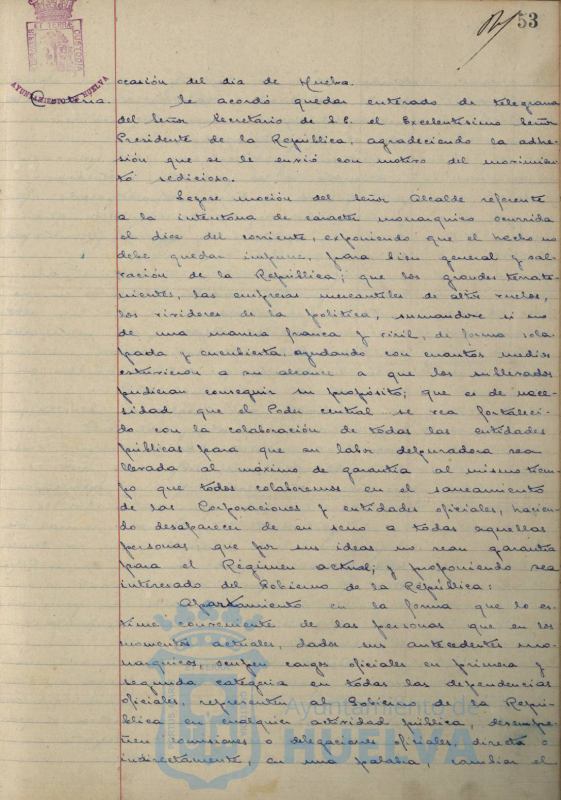 53
AYUNTAMIENTO DE HUELVA
ocasión del dia de Huelva.
Se acordó quedar enterado de telegrama
del Señor Secretario de S.E. el Excelentisimo Señor
Presidente de la República, agradeciendo la adhe-
sión que se le envió con motivo del movimien-
to sedicioso.
Leyose moción del Señor Alcalde referente
a la intentona de caracter monarquico ocurrida
el diez del corriente, exponiendo que el hecho no
debe quedar impune, para bien general y sal-
vación de la República; que los grandes terrate-
nientes, las empresas mercantiles de altos vuelos,
los vividores de la politica, sumandose si no
de una manera franca y civil, de forma sola-
pada y encubierta, ayudando con cuantos medios
estuvieron a su alcance a que los sublevados
pudieran conseguir su propósito; que es de nece-
sidad que el Poder central se vea fortaleci-
do con la colaboración de todas las entidades
públicas para que su labor depuradora sea
llevada al máximo de garantia al mismo tiem-
po que todos colaboremos en el saneamiento
de las Corporaciones y entidades oficiales, hacien-
do desaparecer de su seno a todas aquellas
personas que por sus ideas no sean garantia
para el Régimen actual; y proponiendo sea
interesado del Gobierno de la República:
Apartamiento en la forma que lo es-
time conveniente de las personas que en los
momentos actuales, dados sus antecedentes mo-
narquicos, ocupen cargos oficiales en primera y
segunda categoria en todas las dependencias
oficiales, representen al Gobierno de la Repú-
blica en cualquier actividad pública, desempe-
ñen comisiones o delegaciones oficiales, directa o
indirectamente, en una palabra, cambiar el
Ayuntamiento de
HUELVA